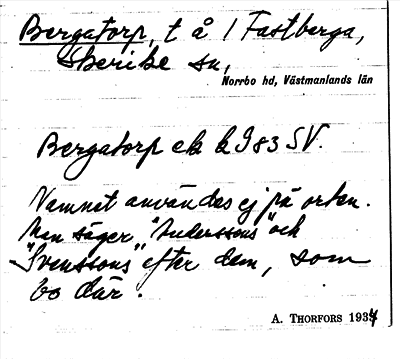 Bergatorp, t å 1 Fastberga,
Skerike sn,
Norrbo hd, Västmanlands län
Bergatorp ek k I 983 SV.
Namnet användes ej på orten.
Man säger "Anderssons" och
"Svenssons" efter dem, som
bo där.
A. THORFORS 1934